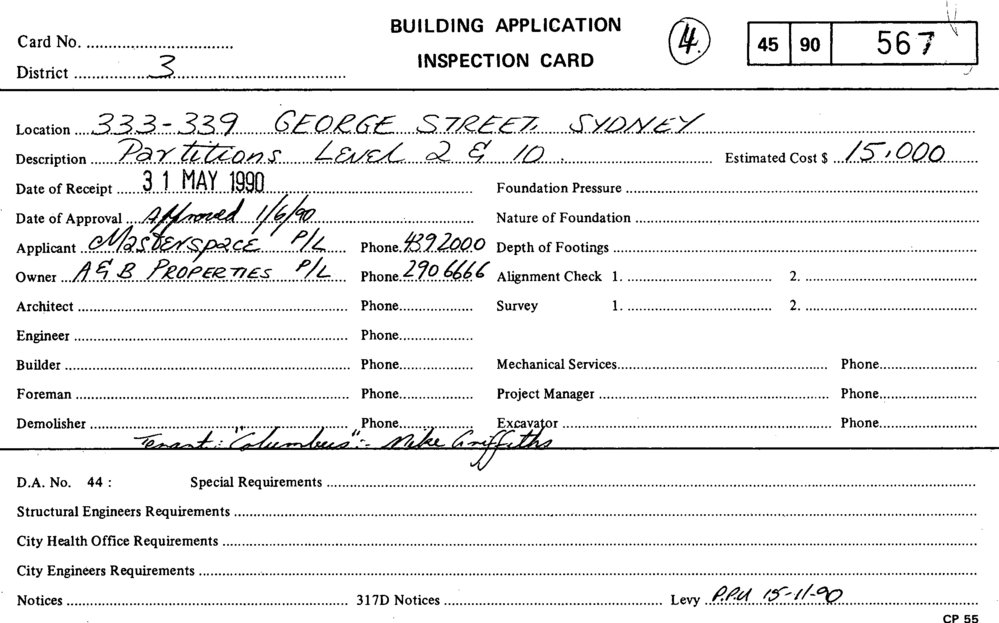 BUILDING APPLICATION
INSPECTION CARD
Card No.
District 3
4.
45 90 567
Location 333-339 GEORGE STREET. SYDNEY
Description Partitions LEVEL 2 & 10. Estimated Cost $ 15,000
Date of Receipt 31 MAY 1990 Foundation Pressure
Date of Approval Approved 1/6/90 Nature of Foundation
Applicant MASTERSPACE P/L Phone 439.2000 Depth of Footings
Owner A & B PROPERTIES P/L Phone 290 6666 Alignment Check 1. 2.
Architect Phone Survey 1. 2.
Engineer Phone
Builder Phone Mechanical Services Phone
Foreman Phone Project Manager Phone
Demolisher Phone Excavator Phone
Tenant: "Columbus":- Mike Griffiths
D.A. No. 44 : Special Requirements
Structural Engineers Requirements
City Health Office Requirements
City Engineers Requirements
Notices 317D Notices Levy P.P.U 15-11-90
CP 55